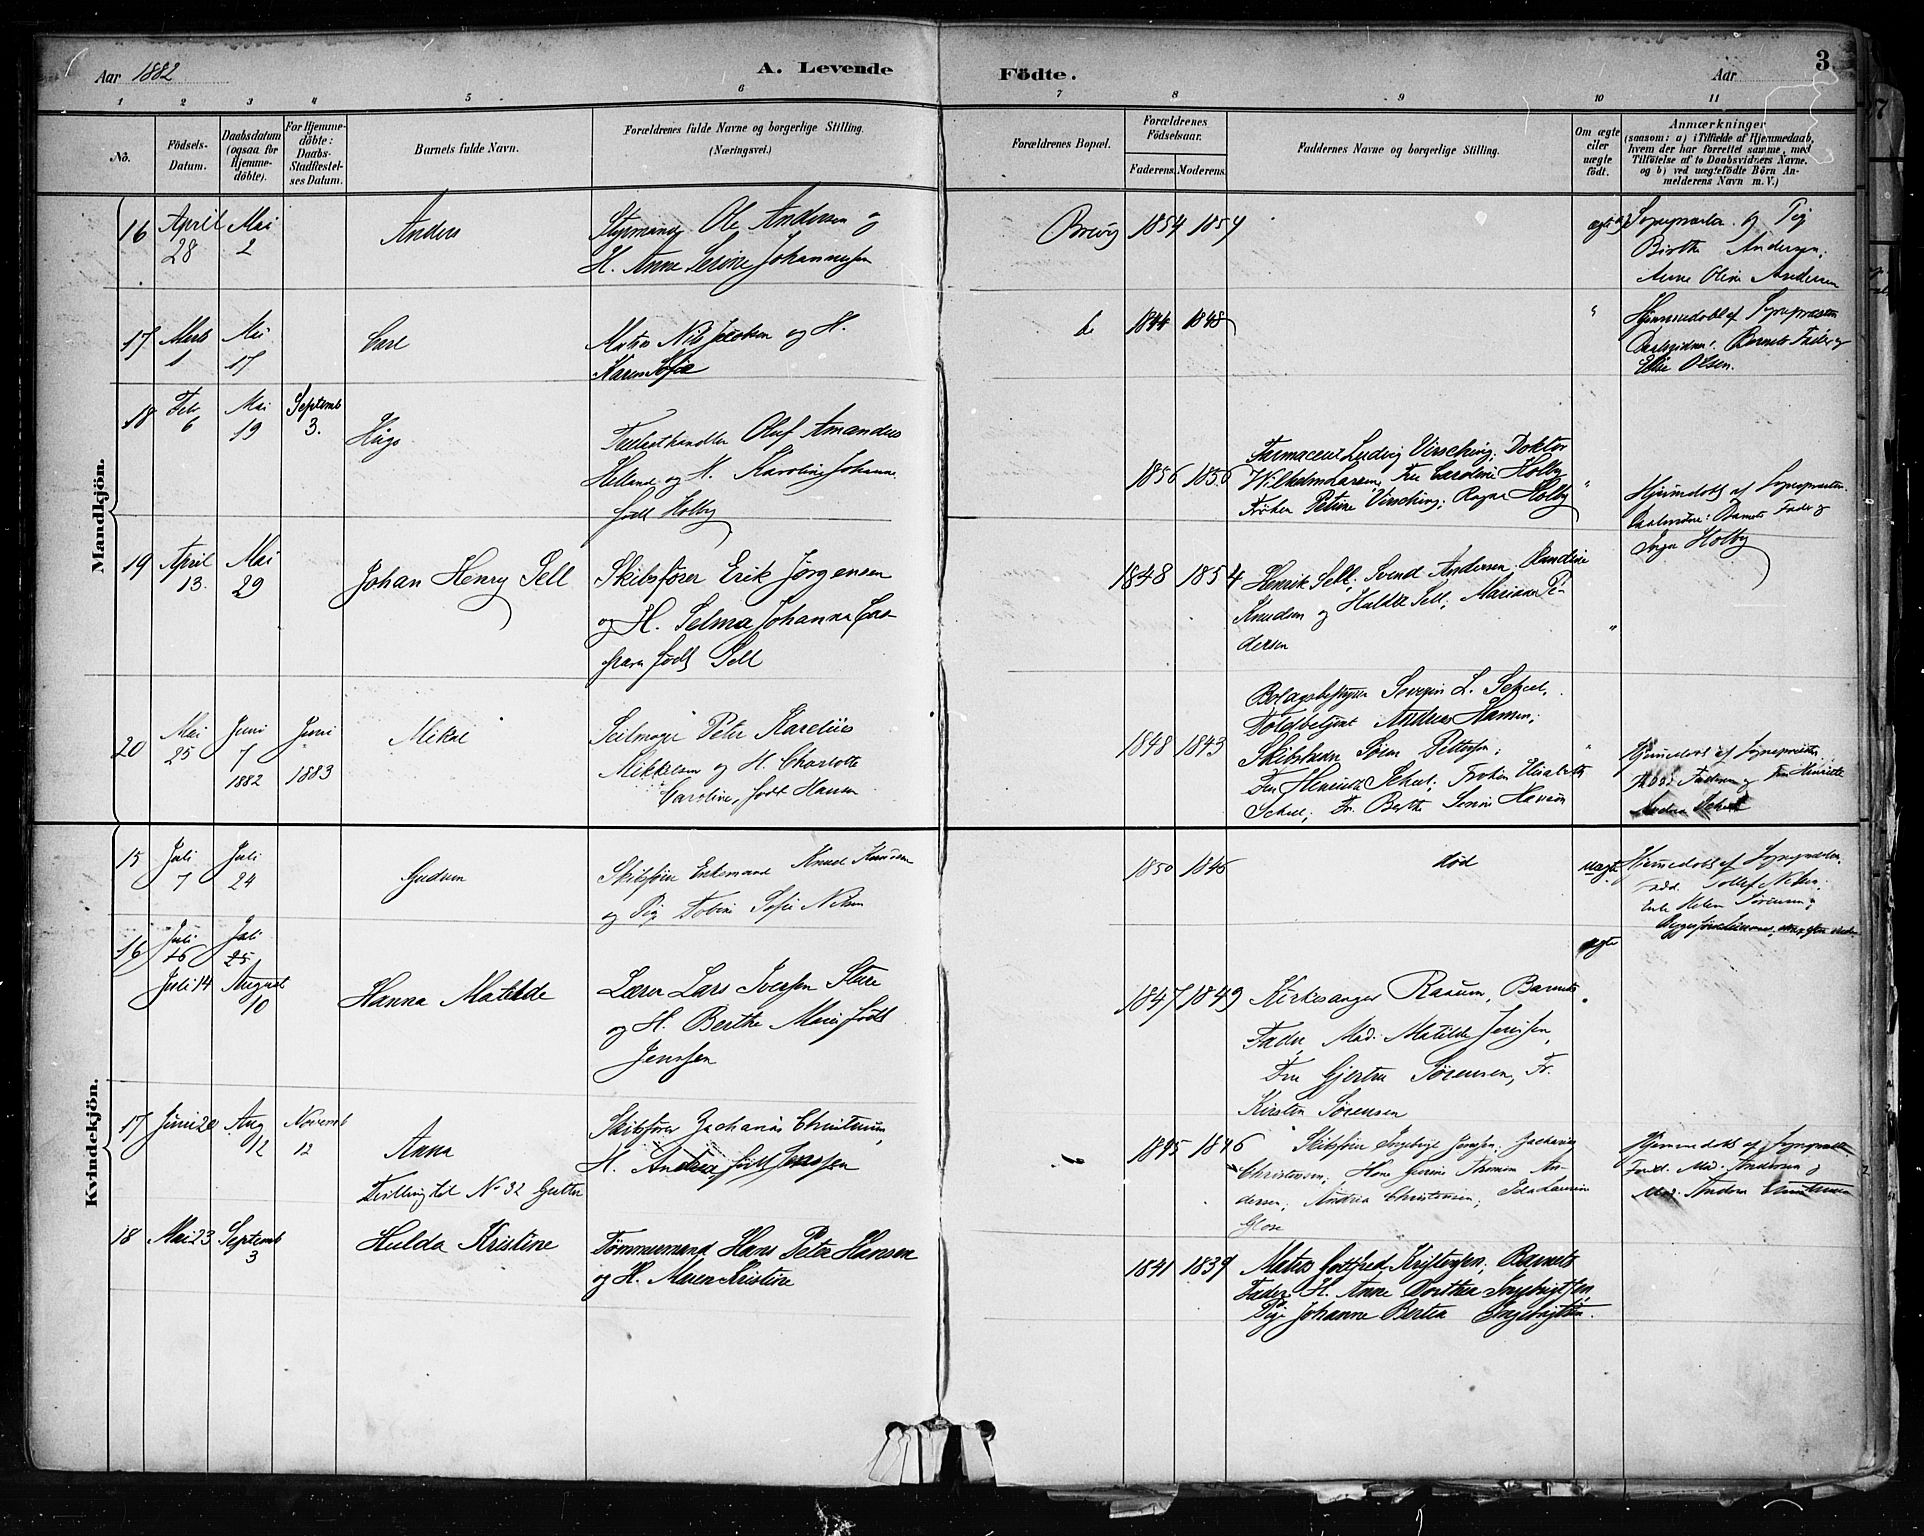 Aar 1882
A. Levende
Födte.
Aar
3
1 2 3 4 5 6 7 8 9 10 11
No.
Födsels-
Datum.
Daabsdatum
(ogsaa for
Hjemme-
döbte).
For Hjemme-
döbte:
Daabs-
Stadfæstel-
ses Datum.
Barnets fulde Navn.
Forældrenes fulde Navne og borgerlige Stilling.
(Næringsvei.)
Forældrenes Bopæl.
Forældrenes
Födselsaar.
Faderens. Moderens.
Faddernes Navne og borgerlige Stilling.
Om ægte
eller
uægte
födt.
Anmærkninger
(saasom: a) i Tilfælde af Hjemmedaab,
hvem der har forrettet samme, med
Tilföielse af to Daabsvidners Navne.
og b) ved uægtefödte Börn An-
melderens Navn m. V.)
Mandkjön.
16 April 28 Mai 2
Anders
Styrmand Ole Andersen og
H. Anne Serine Johannesen
Brevig 1854 1854
ægte
Sognepræsten og Pig
Birthe Andersen,
Anne Oline Andersen
17 Marts 1 Mai 17
Carl
Matros Nils Jacobsen og H.
Karen Sofie
1844 1848
Hjemmedøbt af Sognepræsten
Barnets Fader og
Elise Olsen.
18 Feb 6 Mai 19 Septemb 3.
Hugo
Trælasthandler Oluf Amandus
Helland og H. Karoline Johanne
født Holby
1856 1856
Farmaceut Ludvig Virsching; Doktor
Wilhelm Larsen, Fru Caroline Holby
Frøken Petrine Virsching; Ragna Holby
Hjemmedøbt af Sognepræsten.
Barnets Fader og
Inga Holby
19 April 13. Mai 29
Johan Henry Sell
Skibsfører Erik Jørgensen
og H. Selma Johanna
født Sell
1848 1854
Henrik Sell, Svend Andersen,
Knudsen og Hulda Sell; Mariane Pe-
dersen
20 Mai 25 Juni 7 1882 Juni 1883
Mikal
Seilmager Peter Karelius
Mikkelsen og H. Charlotte
Caroline, født Hansen
1848 1843
Severin L. Scheel,
Toldbetjent Andreas Hansen;
Søren Pettersen;
Fru Henriette Scheel; Frøken Elisabeth
Scheel; Fr. Berthe Serine Hansen
Hjemmedøbt af Sognepræsten
Fru Henriette
Kvindekjön.
15 Juli 7 Juli 24
Gudrun
Skibsfører Enkemand Knud Knudsen
og Pig Tobine Sofie Nilsen
1850 1846
død
uægte
Hjemmedøbt af Sognepræsten.
Fadd. Tollef Nilsen,
Enke Helen Sørensen og
16 Juli 16 Juli 25
ægte
Juli 14 August 10
Hanna Matilde
Lærer Lars Iversen Stere
og H. Berthe Marie født
Jenssen
1847 1849
Kirkesanger Rasum, Barnets
Fader Mad. Matilde Jenssen,
Fru Gjertru Sørensen, Fr.
Kirstin Sørensen
17 Juni 20 Aug 12 Novemb 12
Anna
Tvilling til No 32 Gutter
Skibsfører Zacharias Christensen,
H. Andrea født Jenssen
1845 1846
Skibsfører Ingebrigt Jenssen, Zacharias
Christensen; Hane Gurine Thomine An-
dersen; Andrea Christensen; Ida Laurine
Glose
Hjemmedøbt af Sognepræsten
Fadd. Mad. Andersen og
Mad. Andrea Christensen
18 Mai 23 Septemb 3
Hulda Kristine
Tømmermand Hans Peter Hansen
og H. Maren Kristine
1841 1839
Matros Gottfred Kristensen; Barnets
Fader; H. Anne Dorthea Ingebrigtsen,
Pige Johanne Bertea Ingebrigtsen.